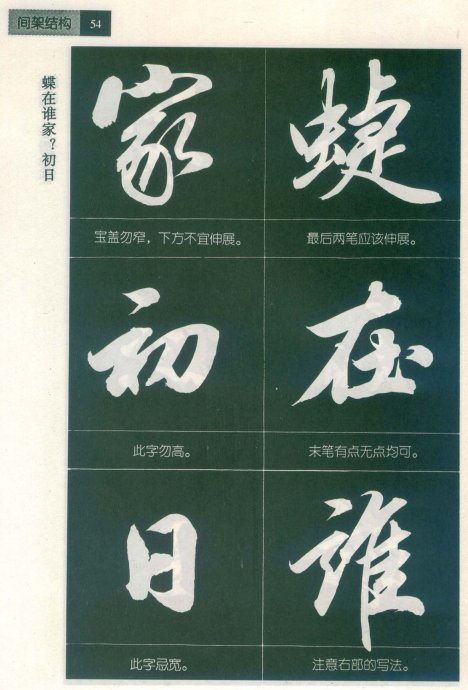 间架结构 54
蝶在谁家？初日
蝶
最后两笔应该伸展。
在
末笔有点无点均可。
谁
注意右部的写法。
家
宝盖勿窄，下方不宜伸展。
初
此字勿高。
日
此字忌宽。